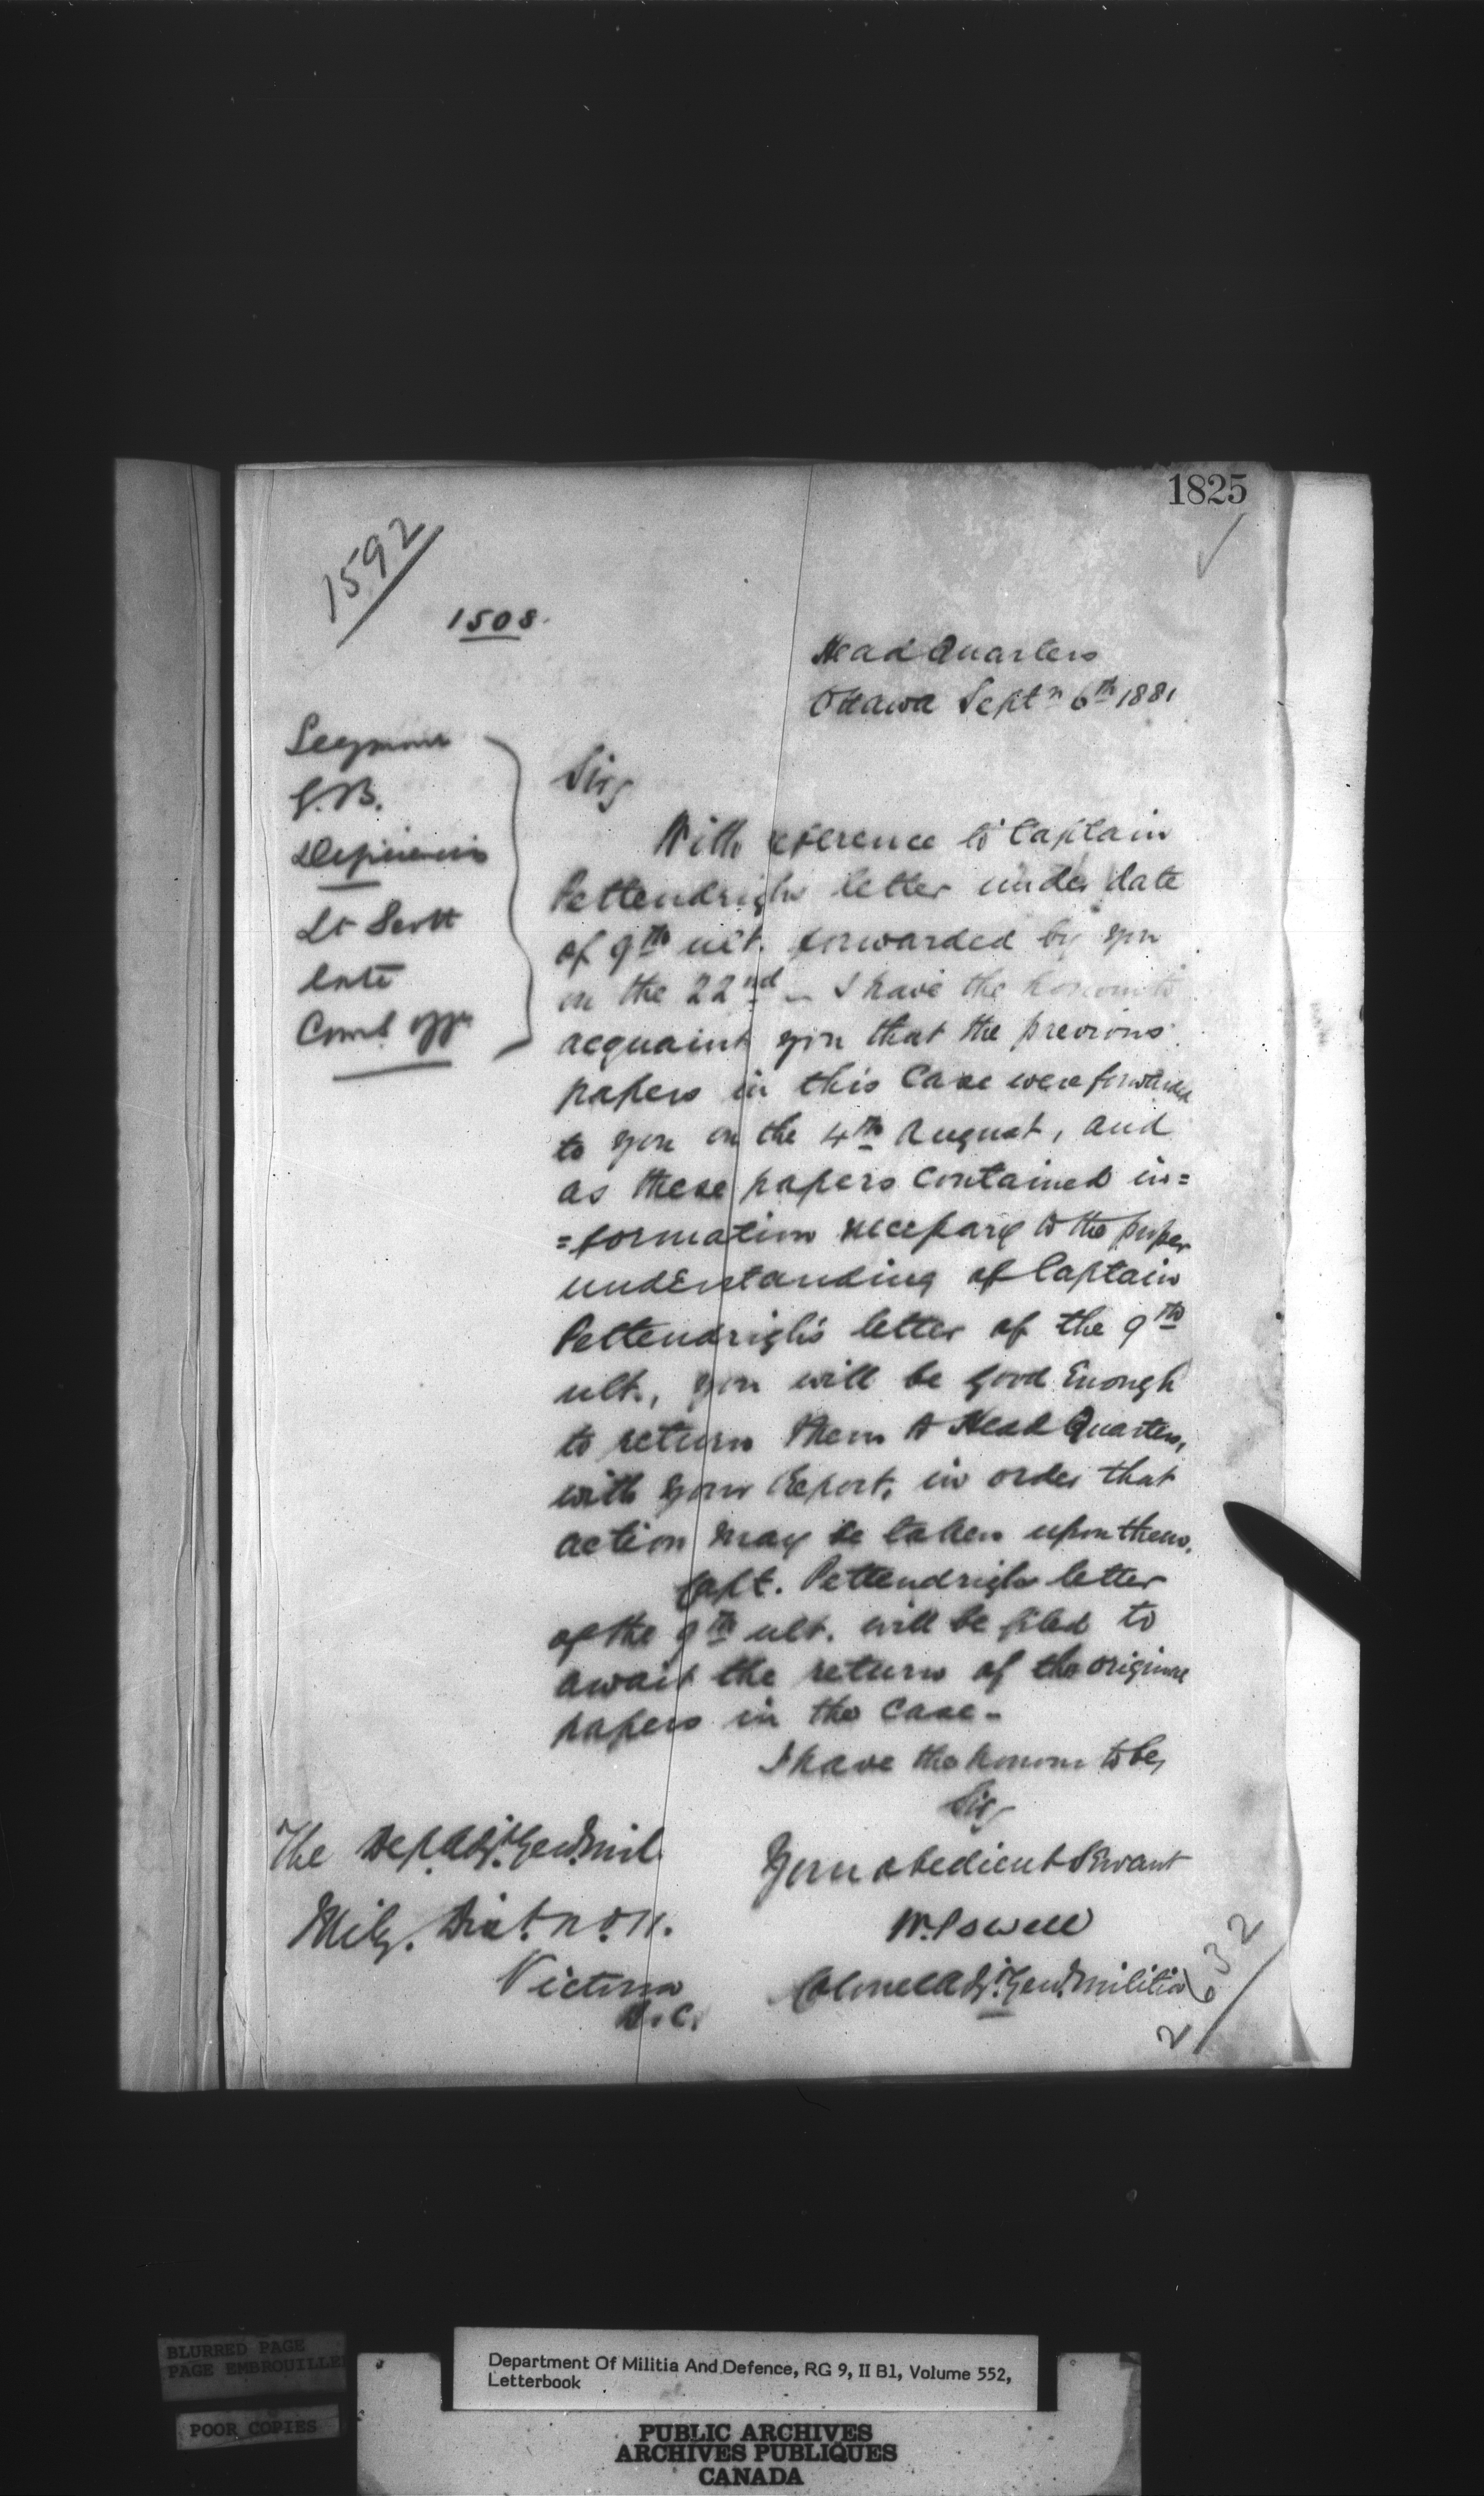 1825
1592
1508.
Head Quarters
Ottawa Septr 6th 1881
Seymour
G.B.
Deficiencies
Lt Scott
late
Comd offr
Sir,
With reference to Captain
Pettendrighs letter under date
of 9th ult. forwarded by you
on the 22nd - I have the honour to
acquaint you that the previous
papers in this Case were forwarded
to you on the 4th August, and
as these papers contained in=
=formation necessary to the proper
understanding of Captain
Pettendrigh's letter of the 9th
ult., you will be good Enough
to return them to Head Quarters,
with your Report, in order that
action may be taken upon them.
Capt. Pettendrighs letter
of the 9th ult. will be filed to
await the return of the original
papers in the Case -
I have the honour to be,
Sir,
Your obedient Servant
W. Powell
Colonel Adjt. Genl. Militia
The Dep. Adjt. Genl. Mil.
Mily. Dist. No. 11.
Victoria
B.C.
2632
BLURRED PAGE
PAGE EMBROUILLEE
POOR COPIES
Department Of Militia And Defence, RG 9, II B1, Volume 552,
Letterbook
PUBLIC ARCHIVES
ARCHIVES PUBLIQUES
CANADA